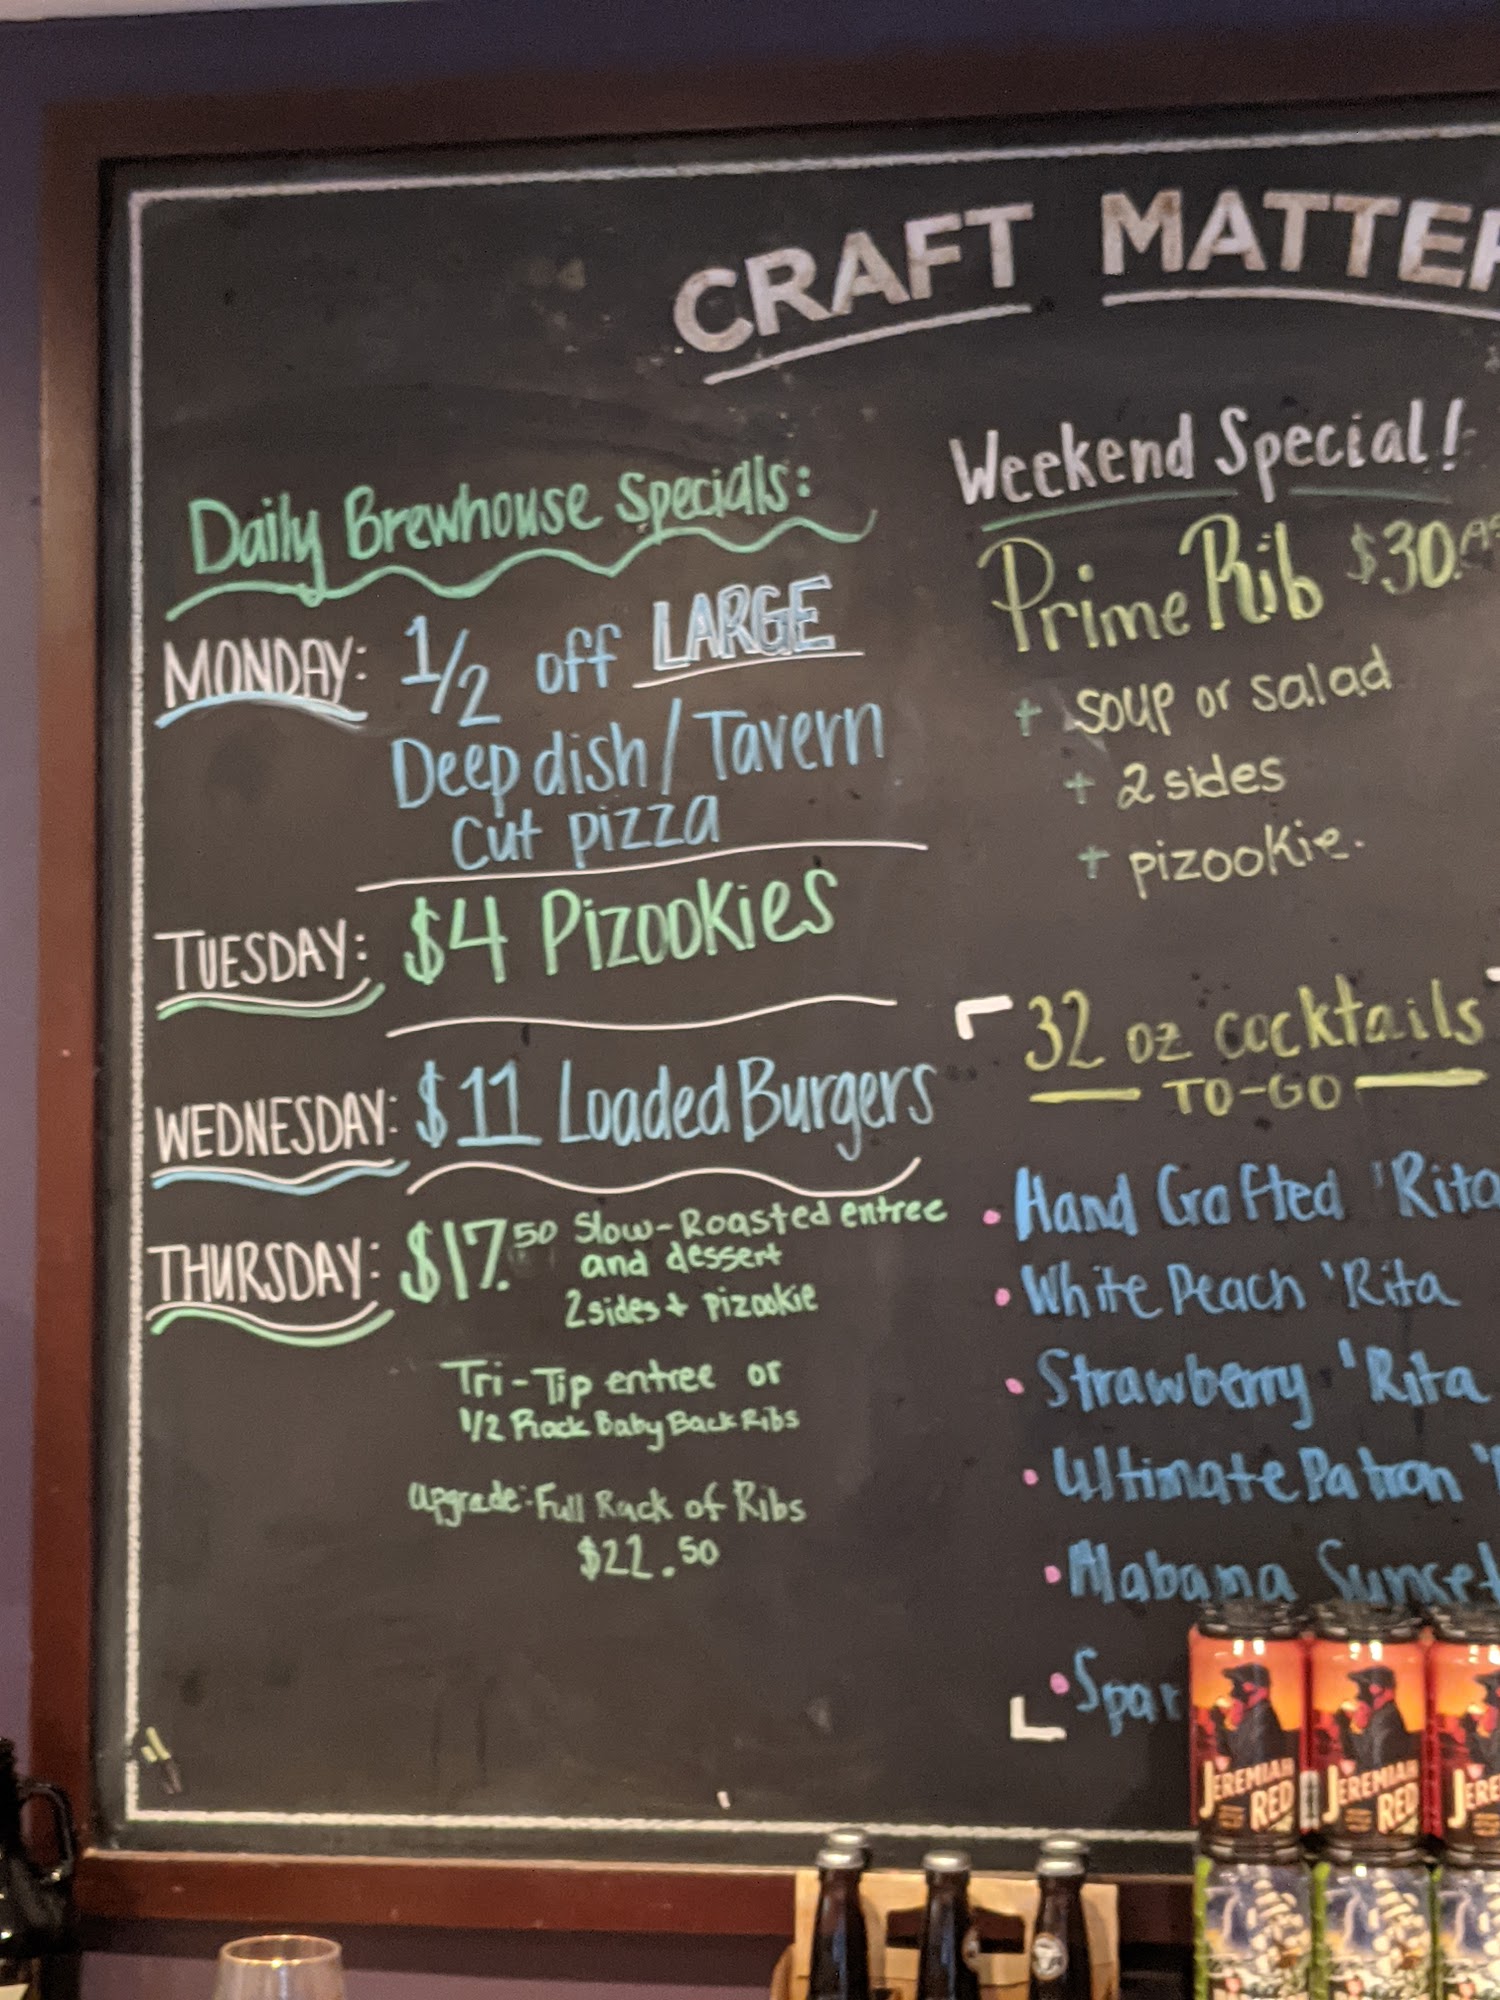 CRAFT MATTER
Daily Brewhouse Specials:
MONDAY: 1/2 off LARGE
Deep dish / Tavern
Cut pizza
TUESDAY: $4 Pizookies
WEDNESDAY: $11 Loaded Burgers
THURSDAY: $17.50 Slow-Roasted entree
and dessert
2 sides + pizookie
Tri-Tip entree or
1/2 Rack Baby Back Ribs
Upgrade: Full Rack of Ribs
$22.50
Weekend Special!
Prime Rib $30.
+ soup or salad
+ 2 sides
+ pizookie.
32 oz cocktails
TO-GO
• Hand Crafted 'Rita
• White Peach 'Rita
• Strawberry 'Rita
• Ultimate Patron '
• Alabama Sunset
• Spar
JEREMIAH RED
JEREMIAH RED
JERE